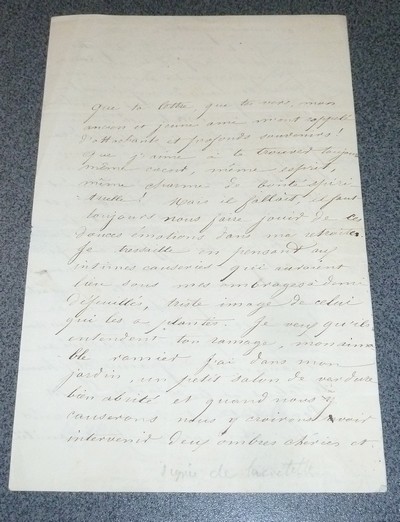 Que ta lettre que tu mon
ancien et jeune ami m'ont rappelé
d'attachants et profonds souvenirs!
que j'aime à te trouver toujours
même cœur, même esprit,
même charme de bonté spiri
tuelle! Mais il fallait, il faut
toujours nous faire jouir de ces
douces émotions dans ma retraite
Je tressaille en pensant aux
intimes causeries qui auraient
lieu sous mes ombrages à demi
défeuillés, triste image de celui
qui les a plantés. Je veux qu'ils
entendent ton ramage, mon aima
ble ramier j'ai dans mon
jardin, un petit salon de verdure
bien abrité et quand nous y
causerons nous y croirons avoir
intervenir deux ombres chéries et
signée de Lacretelle